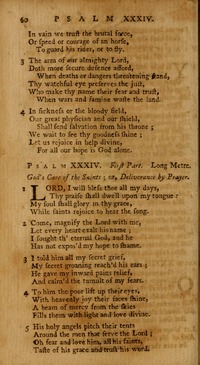 60 PSALM XXXIV.
In vain we trust the brutal force,
Or speed or courage of an horse,
To guard his rider, or to fly.
3 The arm of our almighty Lord,
Doth more secure defence afford,
When deaths or dangers threatening stand,
Thy watchful eye preserves the just,
Who make thy name their fear and trust,
When wars and famine waste the land.
4 In sickness or the bloody field,
Our great physician and our shield,
Shall send salvation from his throne ;
We wait to see thy goodness shine ;
Let us rejoice in help divine,
For all our hope is God alone.
PSALM XXXIV. First Part. Long Metre.
God's Care of the Saints ; or, Deliverance by Prayer.
1 LORD, I will bless thee all my days,
Thy praise shall dwell upon my tongue :
My soul shall glory in thy grace,
While saints rejoice to hear the song.
2 Come, magnify the Lord with me,
Let every heart exalt his name ;
I sought th' eternal God, and he
Has not expos'd my hope to shame.
3 I told him all my secret grief,
My secret groaning reach'd his ears ;
He gave my inward pains relief,
And calm'd the tumult of my fears.
4 To him the poor lift up their eyes,
With heavenly joy their faces shine,
A beam of mercy from the skies
Fills them with light and love divine.
5 His holy angels pitch their tents
Around the men that serve the Lord ;
Oh fear and love him, all his saints,
Taste of his grace and trust his word.